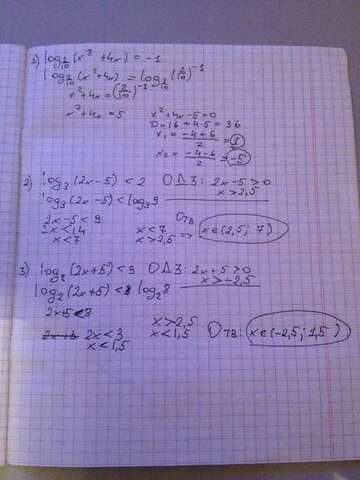 1) log_{2/10} (x² + 4x) = -1
log_{2/10} (x²+4x) = log_{2/10} (2/10)^{-1}
x²+4x = (2/10)^{-1}
x²+4x = 5   x²+4x-5=0
D=16+4·5=36
x₁ = (-4+6)/2 = 1
x₂ = (-4-6)/2 = -5
2) log₃ (2x-5) < 2   ОДЗ: 2x-5>0
x>2,5
log₃ (2x-5) < log₃9
2x-5<9
2x<14   x<7   Отв:
x<7   x>2,5 => x∈(2,5; 7)
3) log₂ (2x+5) < 3   ОДЗ: 2x+5>0
x>-2,5
log₂ (2x+5) < log₂ 8
2x+5<8
2x<3   x>2,5   Отв: x∈(-2,5; 1,5)
x<1,5   x<1,5